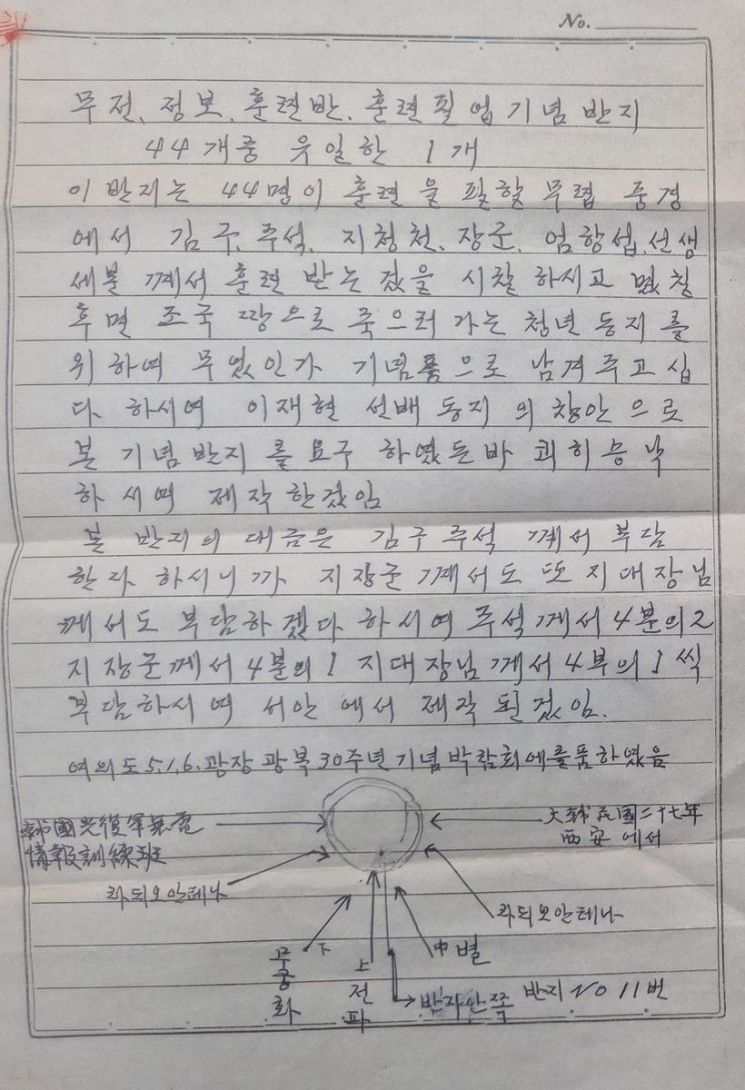 No.
무전, 정보, 훈련반, 훈련필업기념반지
44개중 유일한 1개
이 반지는 44명이 훈련을 필할 무렵 중경
에서 김구, 주석, 지청천, 장군, 엄항섭, 선생
세분 께서 훈련 받는 겄을 시찰 하시고 몇칠
후면 조국 땅으로 죽으러 가는 청년 동지 를
위하여 무었인가 기념품으로 남겨주고 십
다 하시여 이재현 선배 동지 의 창안 으로
본 기념반지 를 요구 하였든바 쾌히 승낙
하시여 제작한겄임
본 반지의 대금은 김구 주석 께서 부담
한다 하시니까 지장군 께서도 또 지대장님
께서도 부담하겠다 하시여 주석께서 4분의2
지장군께서 4분의 1 지대장님 께서 4부의 1 씩
부담하시여 서안 에서 제작 된겄임.
여의도 5.1.6.광장 광복 30주년기념박람회에 출품하였음
韓國光復軍無電
情報訓練班
大韓民國二十七年
西安에서
라듸오안테나
라듸오안테나
무궁화 下
上 전파
中별
반지안쪽 반지 NO 11번